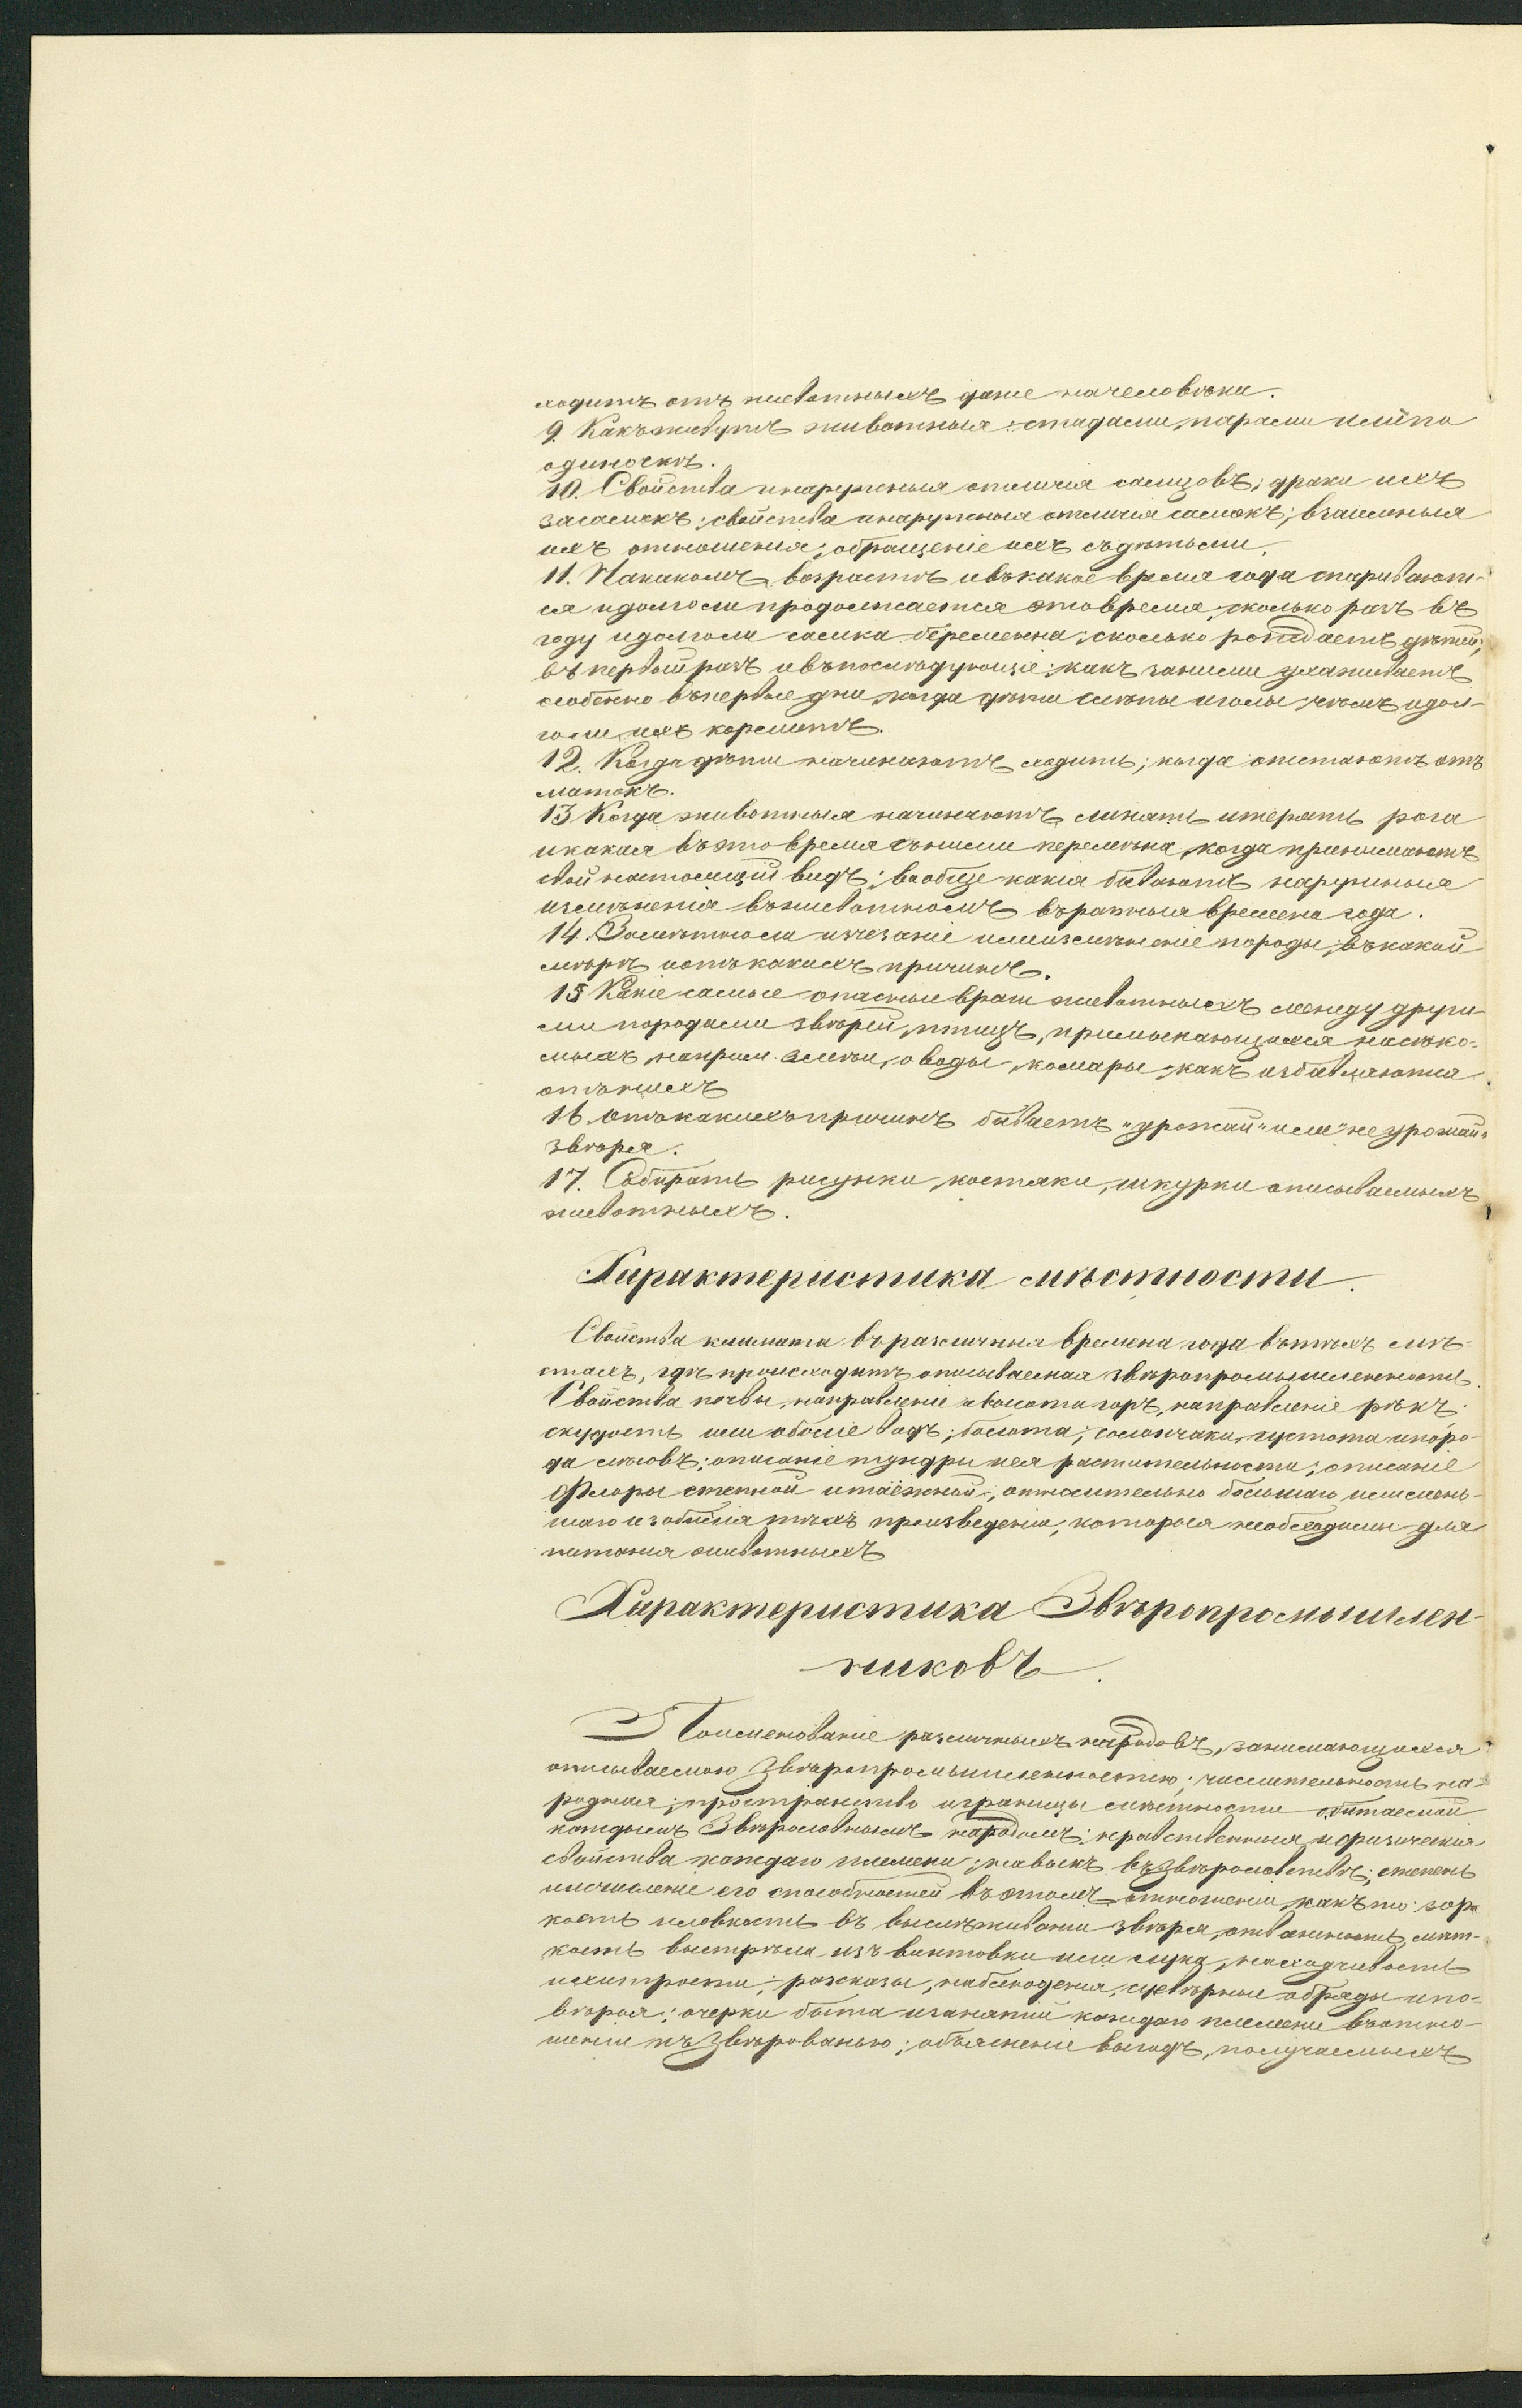 ходитъ отъ животныхъ даже на человѣка.
9. Какъ живутъ животныя: стадами, парами или по
одиночкѣ.
10. Свойства и наружныя отличія самцовъ, драки ихъ
за самокъ; свойства и наружныя отличія самокъ; взаимныя
ихъ отношенія; обращеніе ихъ съ дѣтьми.
11. На какомъ возрастѣ и въ какое время года спаривают-
ся и долго ли продолжается это время; сколько разъ въ
году и долго ли самка беременна; сколько рождаетъ дѣтей;
въ первый разъ и въ послѣдующіе; какъ за ними ухаживаетъ
особенно въ первые дни, когда дѣти слѣпы и голы, чѣмъ и дол-
го ли ихъ кормитъ.
12. Когда дѣти начинаютъ ходить; когда отстаютъ отъ
матокъ.
13 Когда животныя начинаютъ линять и терять рога
и какая въ это время съ ними перемѣна, когда принимаютъ
свой настоящій видъ; вообще какія бываютъ наружныя
измѣненія въ животномъ въ разныя времена года.
14. Замѣтно ли изчезаніе или измѣненіе породы; въ какой
мѣрѣ и отъ какихъ причинъ.
15 Какіе самые опасные враги животныхъ между други-
ми породами звѣрей, птицъ, пресмыкающихся насѣко-
мыхъ, наприм. змѣи, оводы, комары; какъ избавляются
отъ нихъ
16 Отъ какихъ причинъ бываетъ "урожай" или "неурожай"
звѣря.
17. Собирать рисунки, костяки, шкурки описываемыхъ
животныхъ.
Характеристика мѣстности.
Свойства климата въ различныя времена года въ тѣхъ мѣ-
стахъ, гдѣ происходитъ описываемая звѣропромышленность.
Свойства почвы, направленіе и высота горъ, направленіе рѣкъ;
скудость или обиліе водъ; болота; солончаки, густота и поро-
да лѣсовъ; описаніе тундры и ея растительности; описаніе
флоры степной и таёжной, относительно большаго или мень-
шаго изобилія тѣхъ произведеніи, которыя необходимы для
питанія животныхъ
Характеристика Звѣропромышлен-
никовъ.
Поименованіе различныхъ народовъ, занимающихся
описываемою Звѣропромышленностію; числительность на-
родная; пространство и границы мѣстности обитаемой
каждымъ Звѣроловнымъ народомъ; нравственныя и физическія
свойства каждаго племени; навыкъ въ Звѣроловствѣ; степень
и исчисленіе его способностей въ этомъ отношеніи какъ то: зор-
кость и ловкость въ выслѣживаніи звѣря, отважность, мѣт-
кость выстрѣла изъ винтовки или лука, находчивость
и хитрости; разсказы, наблюденія, суевѣрные обряды и по-
вѣрья; очерки быта и занятій каждаго племени въ отно-
шеніи къ Звѣрованью; объясненіе выгодъ, получаемыхъ